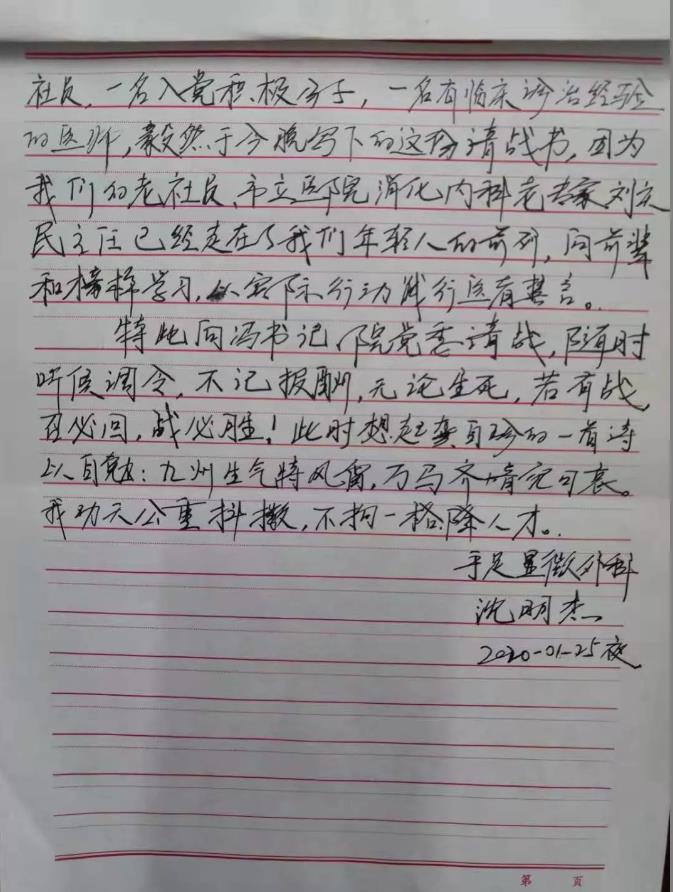 社员,一名入党积极分子,一名有临床诊治经验
的医师,毅然于今晚写下的这份请战书,因为
我们的老社员、市立医院消化内科老专家刘文
民主任已经走在了我们年轻人的前列,向前辈
和榜样学习,以实际行动践行医者誓言。
特此向冯书记、院党委请战,随时
听候调令,不记报酬,无论生死,若有战,
召必回,战必胜!此时想起龚自珍的一首诗
以自勉:九州生气恃风雷,万马齐喑究可哀。
我劝天公重抖擞,不拘一格降人才。
手足显微外科
沈明杰
2020-01-25夜
第 页